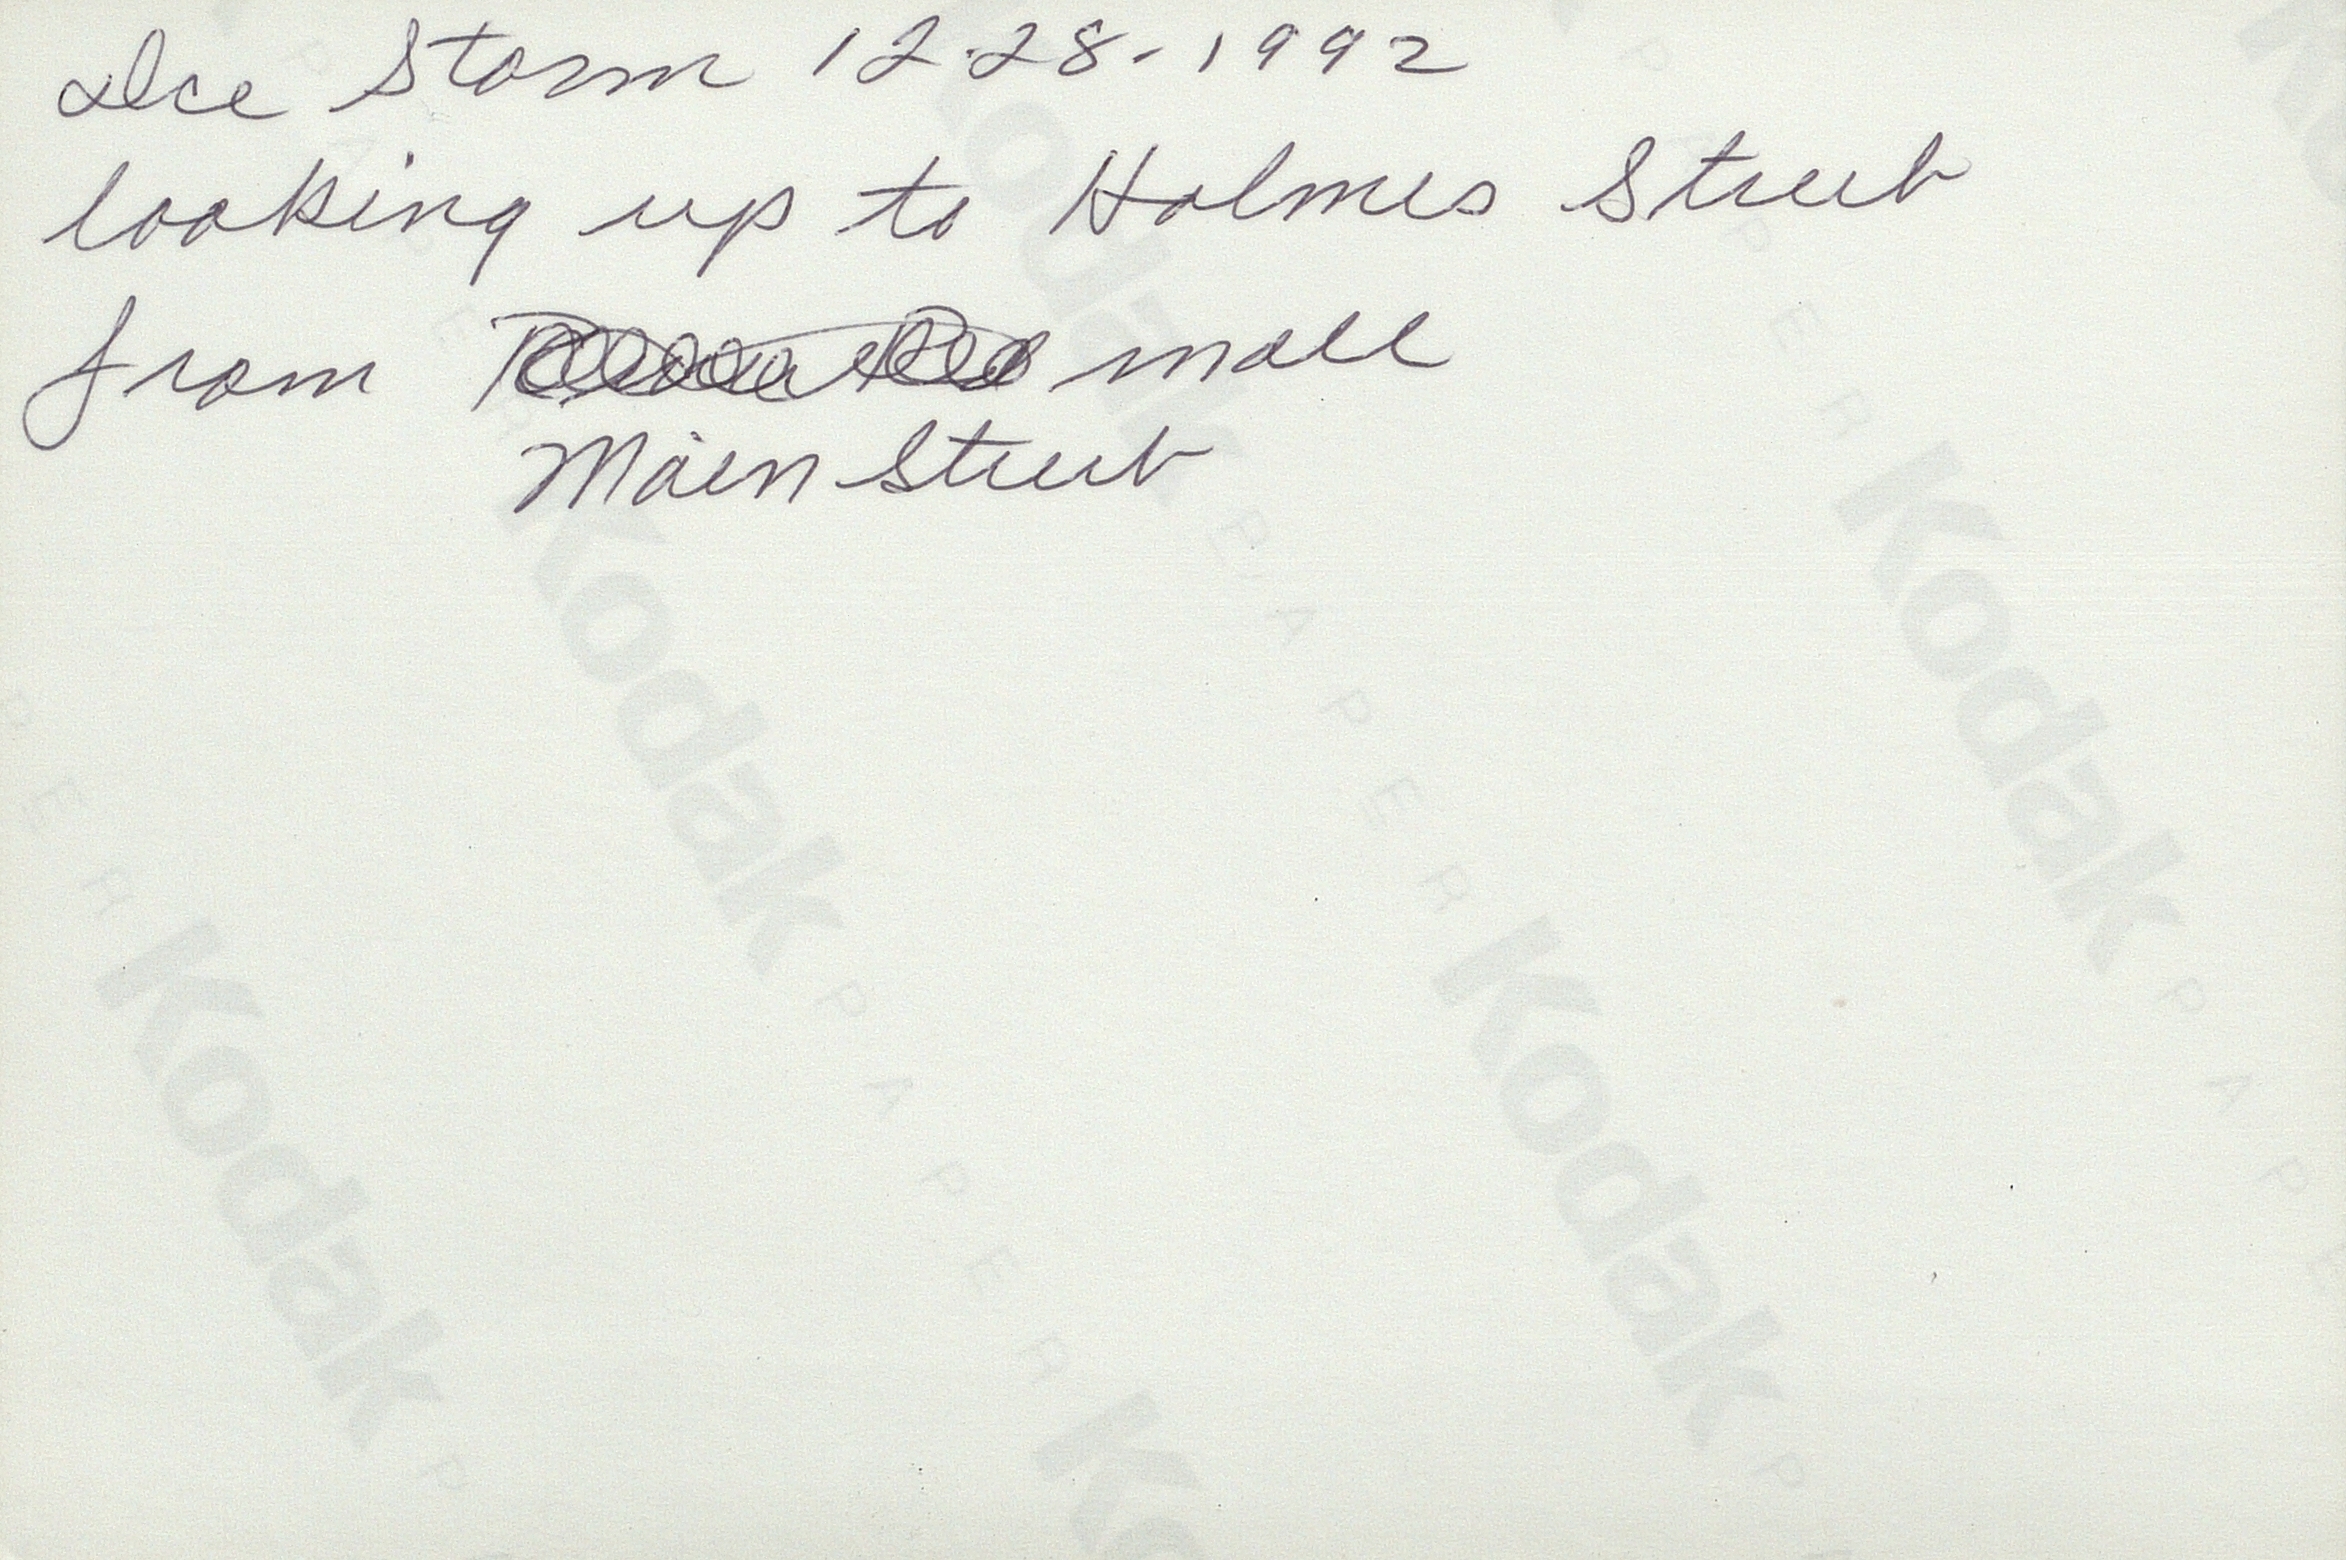 Ice Storm 12-28-1992
looking up to Holmes Street
from mall
Main Street
Kodak PAPER
Kodak PAPER
Kodak PAPER
Kodak PAPER
Kodak PAPER